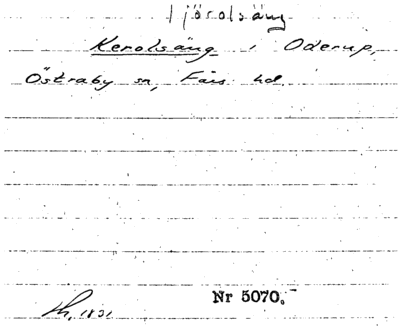 Kerolsäng i Oderup,
Östraby sn, Färs hd.
1831
Nr 5070.